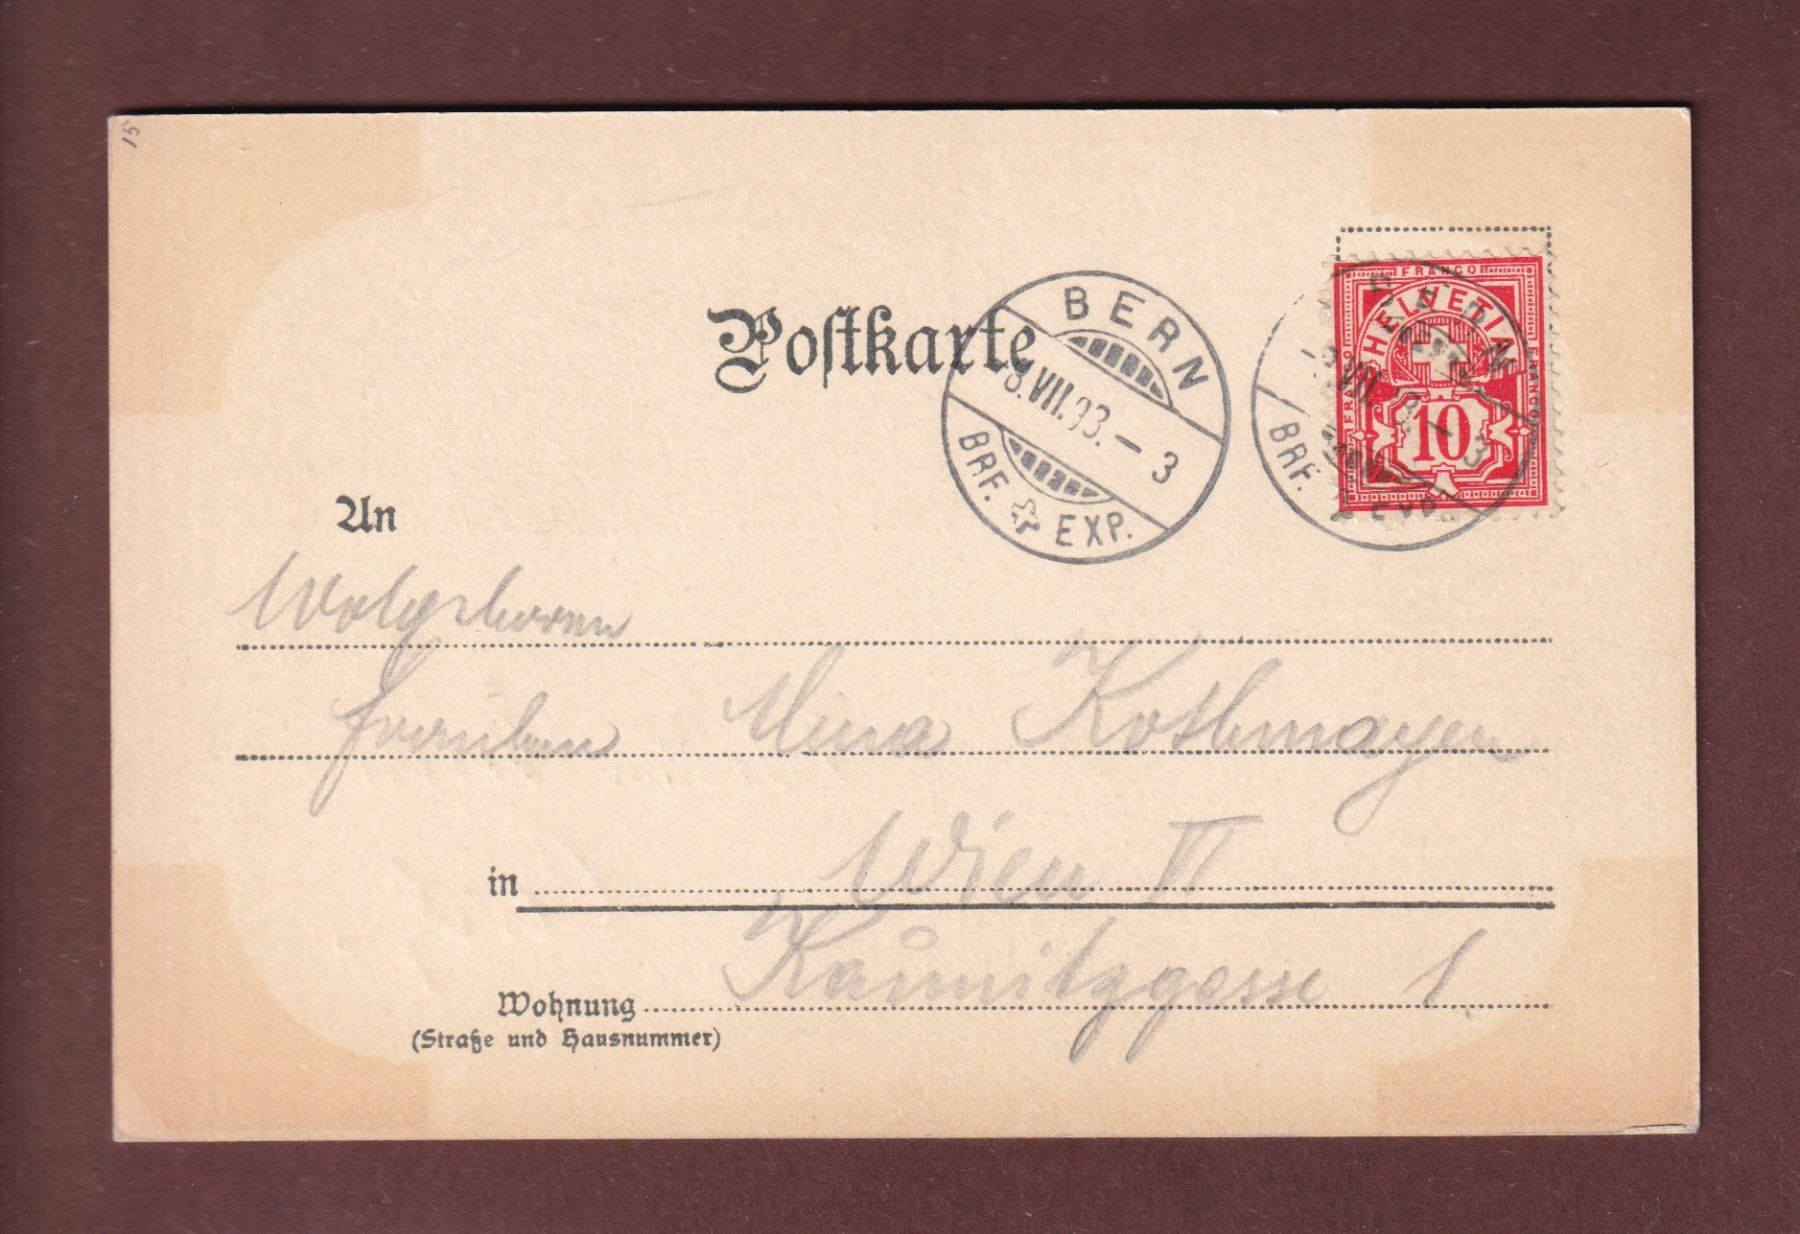 15
Postkarte
BERN
8.VII.93.–3
BRF. EXP.
FRANCO
HELVETIA
FRANCO
FRANCO
10
BRF. EXP.
An
Wolgeboren
Fräulein Mina Kothmayer
in Wien VI
Wohnung Kaunitzgasse 1
(Straße und Hausnummer)